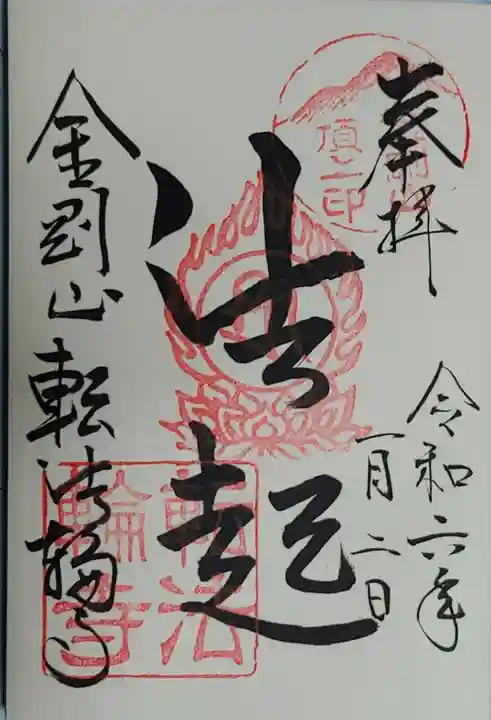 奉拝
令和六年
一月二日
法起
金剛山転法輪寺
頂上印
転法
輪寺